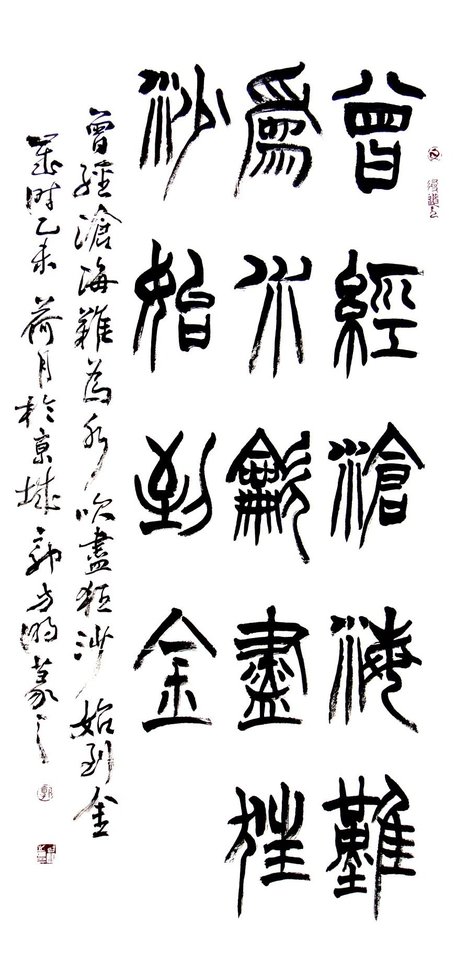 曾經滄海難
爲水龡盡狂
沙始到金
曾經滄海難為水吹盡狂沙始到金
歲時乙未荷月於京城郭方篆之